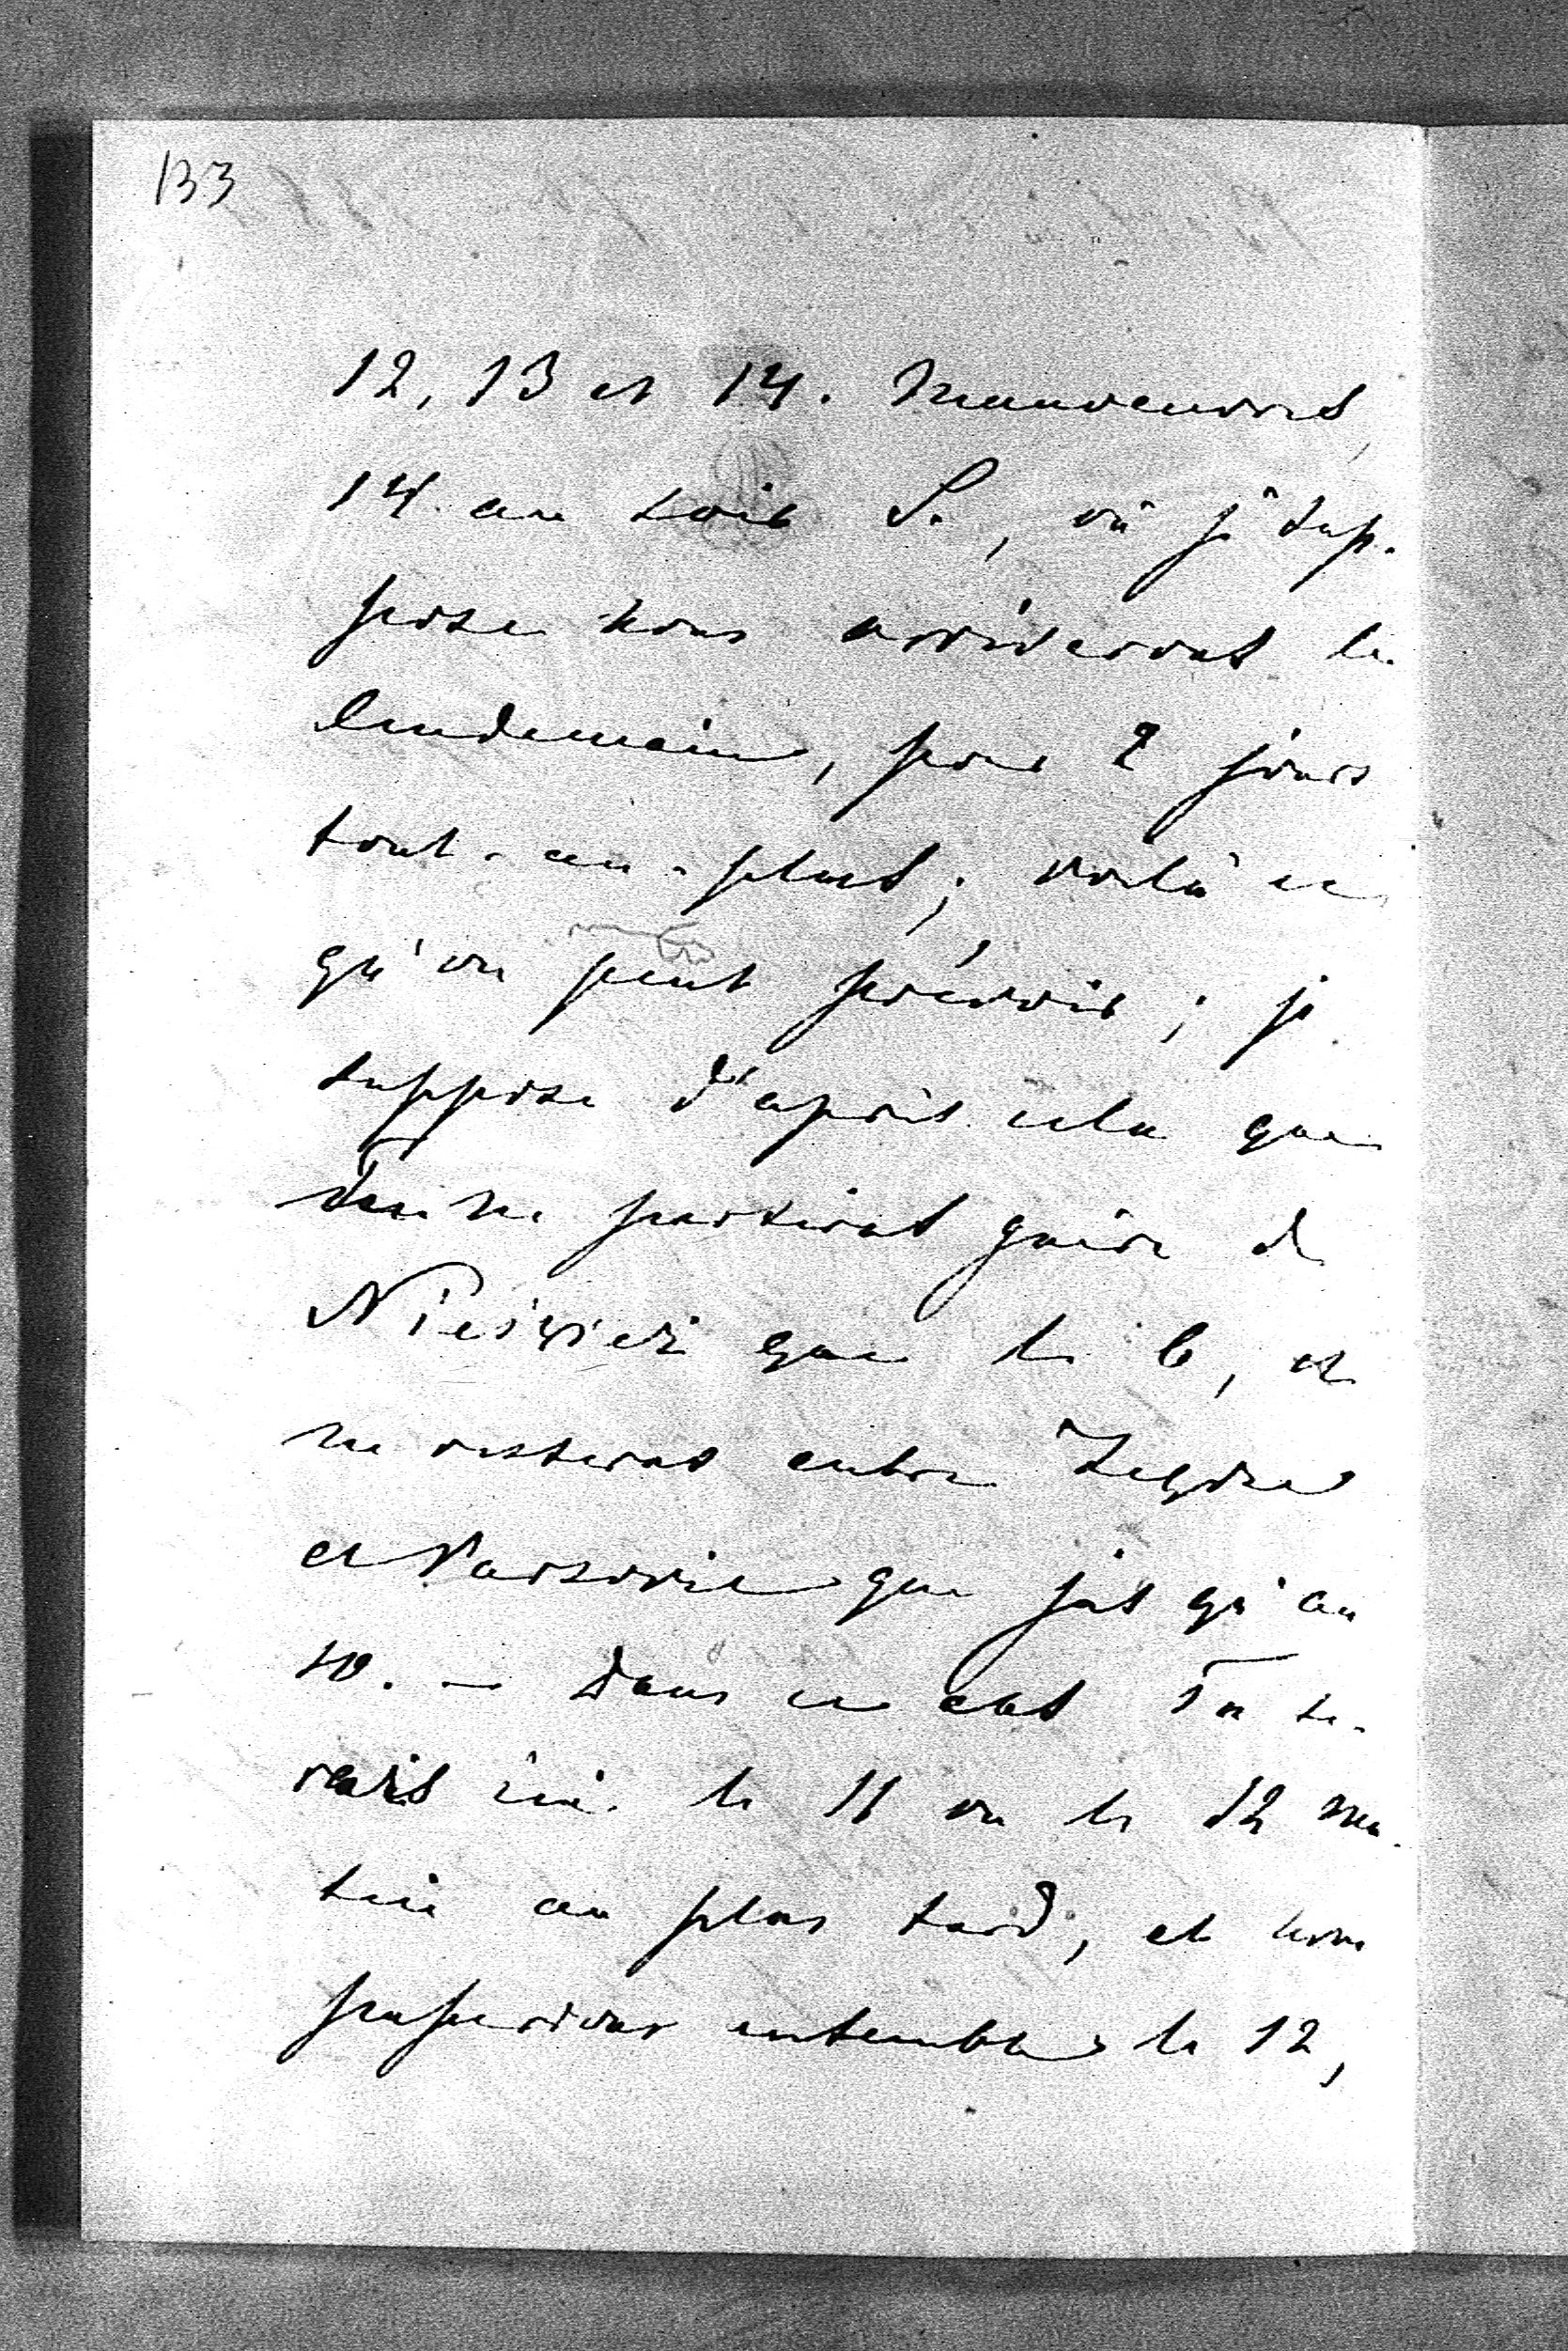 133
12, 13 et 14. Manoeuvres,
14. au soir S., où je sup-
pose nous arriverons le
lendemain, pour 2 jours
tout-au-plus; voilà ce
qu'on peut prévoir; je
suppose d'après cela que
Tu ne partiras guère de
Nieśwież que le 6, et
ne resteras entre Zegrze
et Varsovie que jusqu'au
10. – Dans ce cas Tu se-
rais ici le 11 ou le 12 ma-
tin au plus tard, et nous
ensemble le 12,